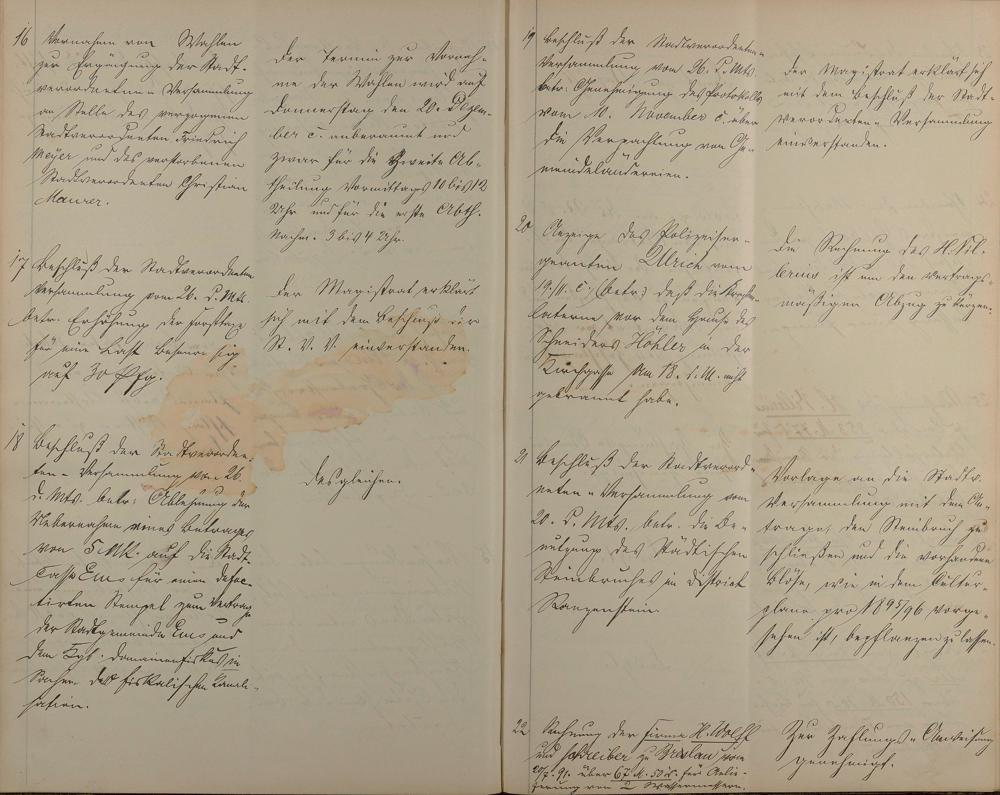 16
Vornahme von Wahlen
zur Ergänzung der Stadt-
verordneten-Versammlung
an Stelle des verzogenen
Stadtverordneten Friedrich
Meyer und des verstorbenen
Stadtverordneten Christian
Maurer.
Der Termin zur Vornah-
me der Wahlen wird auf
Donnerstag den 20. Dezem-
ber c. anberaumt und
zwar für die zweite Ab-
theilung Vormittags 10 bis 12
Uhr und für die erste Abth.
Nachm. 3 bis 4 Uhr.
17
Beschluß der Stadtverordneten
Versammlung vom 26. d. Mts.
betr. Erhöhung der Forsttaxe
für eine Last Besenreisig
auf 30 Pfg.
Der Magistrat erklärt
sich mit dem Beschluß der
St. V. V. einverstanden.
18
Beschluß der Stadtverordne-
ten-Versammlung vom 26.
d. Mts. betr: Ablehnung der
Uebernahme eines Betrages
von 5 Mk. auf die Stadt-
casse Ems für einen defec-
tirten Stempel zum Vertrag
der Stadtgemeinde Ems und
dem Kgl. Domainenfiskus in
Sachen der fiskalischen Canali-
sation.
Desgleichen.
19
Beschluß der Stadtverordneten-
Versammlung vom 26. d. Mts.
betr: Genehmigung des Protokolls
vom November c. über
die Verpachtung von Ge-
meindeländereien.
Der Magistrat erklärt sich
mit dem Beschluß der Stadt-
verordneten-Versammlung
einverstanden.
20
Anzeige des Polizeiser-
geanten Ulrich vom
19/11. c. (betr:) daß die Kirchen-
laterne vor dem Hause des
Schneiders Höhler in der
Kirchgasse am 18. d. M. nicht
gebrannt habe.
Die Rechnung des H.
ist um den vertrags-
mäßigen Abzug zu kürzen.
21
Beschluß der Stadtverord-
neten-Versammlung vom
20. d. Mts. betr. die Be-
nutzung des städtischen
Steinbruches im District
Vorlage an die Stadtv.
Versammlung mit dem An-
trage, den Steinbruch zu
schließen und die vorhandene
Blöße, wie in dem Cultur-
plane pro 1895/96 vorge-
sehen ist, bepflanzen zu lassen.
22
Rechnung der Firma H. Wolff
und Schreiber zu Breslau vom
über 67 M. 50 d. für Liefe-
rung von 2 Wassermessern.
Zur Zahlungs-Anweisung
genehmigt.